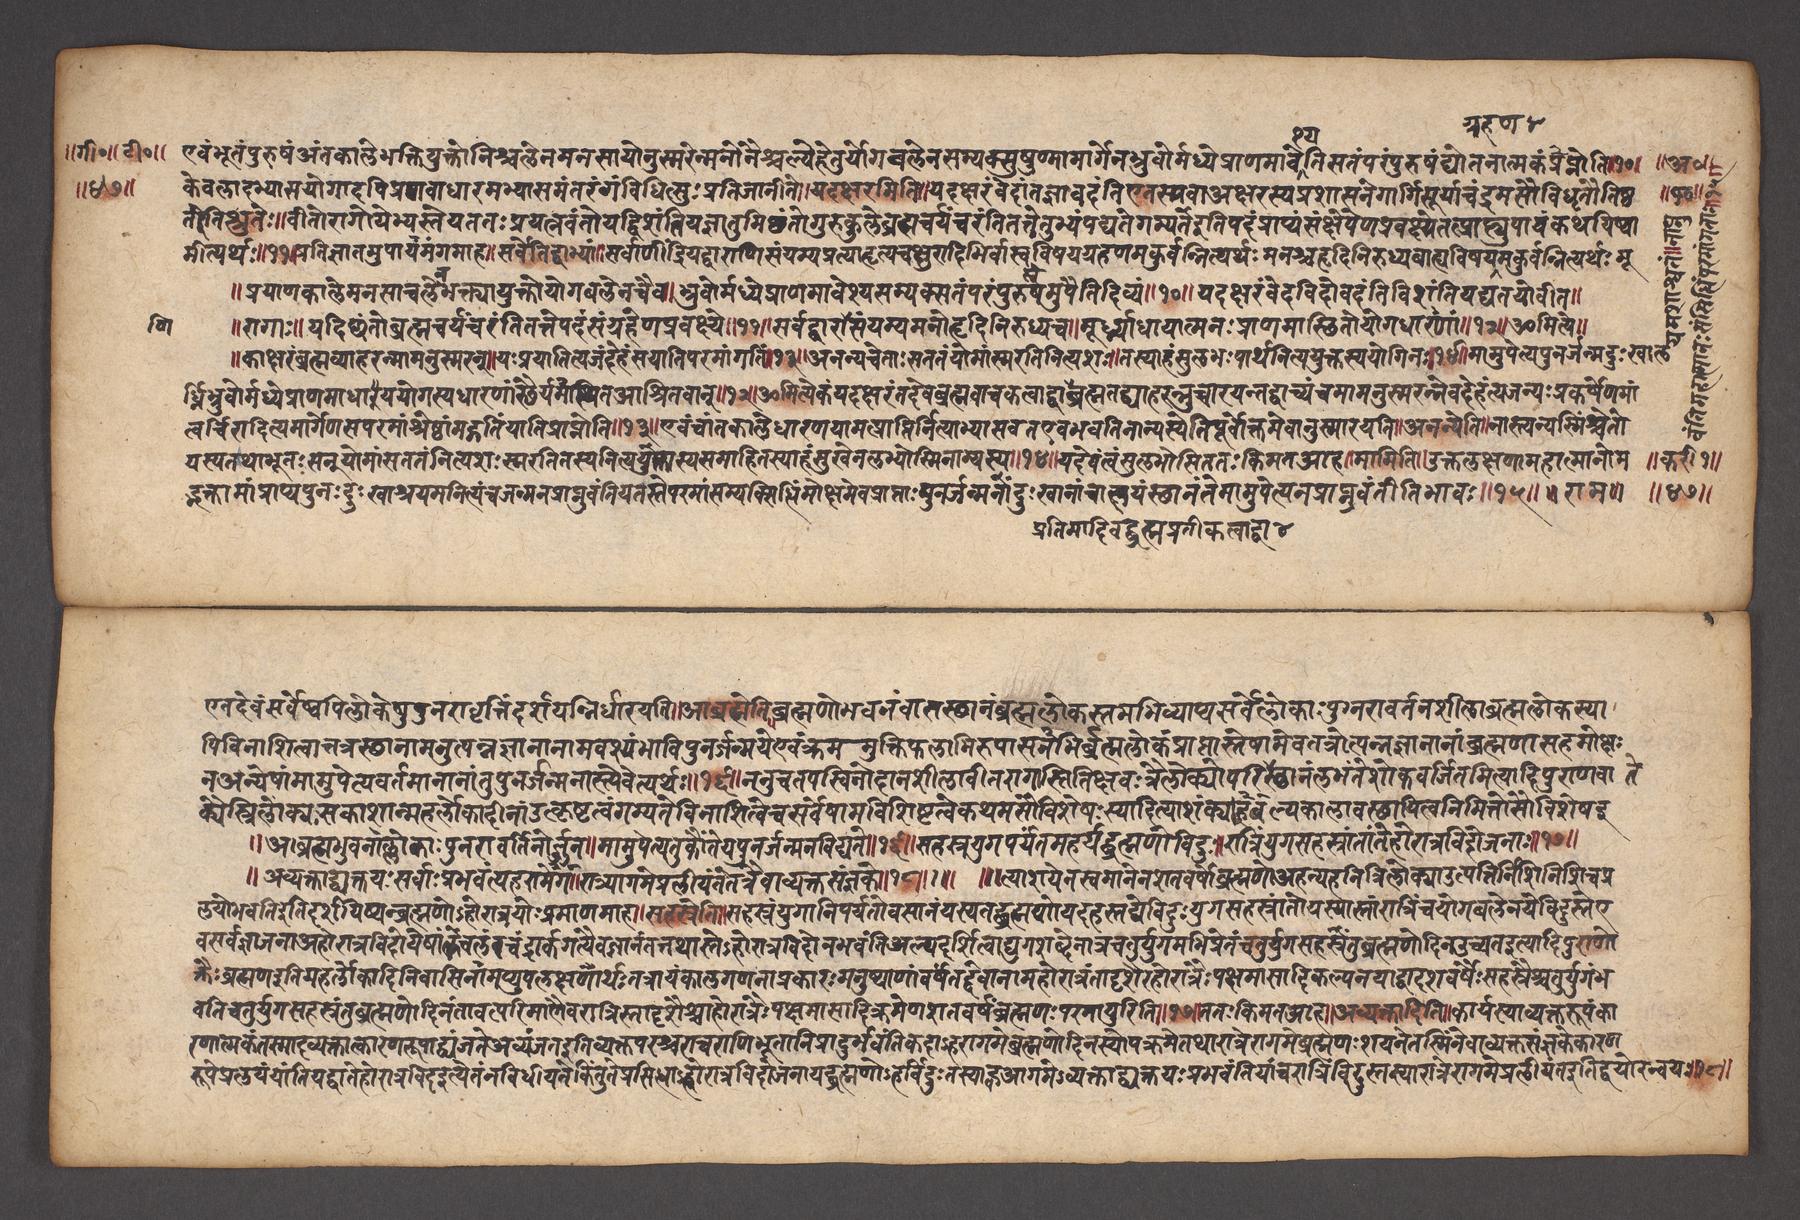 ग्रहण ४
॥गी॰॥टी॰॥ एवंभूतंपुरुषंअंतकालेभक्तियुक्तोनिश्चलेनमनसायोनुस्मरेन्मनोनैश्चल्येहेतुर्योगबलेनसम्यक्सुषुम्णामार्गेनभ्रुवोर्मध्येप्राणमावेश्यतिसतंपरंपुरुषंद्योतनात्मकंप्राप्नोति॥१०॥ ॥अ०॥
॥४७॥ केवलादभ्यासयोगादपिप्रणवाधारमभ्यासमंतरंगंविधित्सुःप्रतिजानीते॥यदक्षरमिति॥यदक्षरंवेदांतज्ञावदंतिएतस्यवाअक्षरस्यप्रशासनेगार्गिसूर्याचंद्रमसौविधृतौतिष्ठ
तइतिश्रुतेः॥वीतोरागोयेभ्यस्तेयततःप्रयत्नवंतोयद्विशंतियज्ञातुमिछंतोगुरुकुलेब्रह्मचर्यंचरंतितत्तेतुभ्यंपद्यतेगम्यतेइतिपदंप्राप्यंसंक्षेपेणप्रवक्ष्येतत्प्राप्त्युपायंकथयिष्या
मीत्यर्थः॥११॥प्रतिज्ञातमुपायंसंगमाह॥सर्वेतिद्वाभ्यां॥सर्वाणींद्रियद्वाराणिसंयम्यप्रत्याहृत्यचक्षुरादिभिर्बाह्यविषयग्रहणमकुर्वन्नित्यर्थःमनश्चहृदिनिरुध्यबाह्यविषयमकुर्वन्नित्यर्थःमू
॥प्रयाणकालेमनसाचलेनभक्त्यायुक्तोयोगबलेनचैव॥भ्रुवोर्मध्येप्राणमावेश्यसम्यक्सतंपरंपुरुषमुपैतिदिव्यं॥१०॥यदक्षरंवेदविदोवदंतिविशंतियद्यतयोवीत॥
णि ॥रागाः॥यदिछंतोब्रह्मचर्यंचरंतितत्तेपदंसंग्रहेणप्रवक्ष्ये॥११॥सर्वद्वारासंयम्यमनोहृदिनिरुध्यच॥मूर्ध्न्याधायात्मनःप्राणमास्थितोयोगधारणां॥१२॥ॐमित्ये॥
॥काक्षरंब्रह्मव्याहरन्मामनुस्मरन्॥यःप्रयातित्यजंदेहंसयातिपरमांगतिं॥१३॥अनन्यचेताःसततंयोमांस्मरतिनित्यशः॥तस्याहंसुलभःपार्थनित्ययुक्तस्ययोगिनः॥१४॥मामुपेत्यपुनर्जन्मदुःखाल
र्ध्निभ्रुवोर्मध्येप्राणमाधाययोगस्यधारणांस्थैर्यमास्थितआश्रितवान्॥१२॥ॐमित्येकंयदक्षरंतदेवब्रह्मवाचकत्वाद्वाब्रह्मतद्व्याहरन्नुच्चारयन्तद्वाच्यंचमामनुस्मरन्नेवदेहंत्यजन्यःप्रकर्षेणमां
त्यर्चिरादित्यमार्गेणसपरमांश्रेष्ठांमद्गतिंयातिप्राप्नोति॥१३॥एवंचांतकालेधारणयामत्प्राप्तिर्नित्याभ्यासवतएवभवतिनान्यस्येतिपूर्वोक्तमेवानुस्मारयति॥अनन्येति॥नास्त्यन्यस्मिंश्चेतो
यस्यतथाभूतःसन्योमांसततंनित्यशःस्मरतितस्यनित्ययुक्तस्यसमाहितस्याहंसुखेनलभ्योस्मिनान्यस्य॥१४॥यद्येवंत्वंसुलभोसिततःकिमतआह॥मामिति॥उक्तलक्षणामहात्मानोम ॥कही१॥
द्भक्तामांप्राप्यपुनःदुःखाश्रयमनित्यंचजन्मनप्राप्नुवंतियतस्तेपरमांसम्यक्सिद्धिंमोक्षमेवप्राप्ताःपुनर्जन्मनोदुःखानांचालयंस्थानंतेमामुपेत्यनप्राप्नुवंतीतिभावः॥१५॥॥राम॥ ॥४७॥
प्रतिमादिवद्ब्रह्मप्रतीकत्वाद्वा ४
यमशाश्वतं॥नाप्नु
वंतिमहात्मानःसंसिद्धिंपरमांगताः
एतदेवंसर्वेष्वपिलोकेषुपुनरावृत्तिंदर्शयन्निर्धारयति॥आब्रह्मेति॥ब्रह्मणोभवनंवासस्थानंब्रह्मलोकस्तमभिव्याप्यसर्वेलोकाःपुनरावर्तनशीलाब्रह्मलोकस्या
पिविनाशित्वात्तत्रस्थानामनुत्पन्नज्ञानानामवश्यंभाविपुनर्जन्मयेएवंक्रममुक्तिफलाभिरुपासनाभिर्ब्रह्मलोकंप्राप्तास्तेषामेवतत्रोत्पन्नज्ञानानांब्रह्मणासहमोक्षः
नअन्येषांमामुपेत्यवर्तमानानांतुपुनर्जन्मनास्त्येवेत्यर्थः॥१६॥ननुचतपस्विनोदानशीलावीतरागास्तितिक्षवःत्रैलोक्योपरिस्थानंलभंतेशोकवर्जितमित्यादिपुराणवा ते
क्यैस्त्रिलोक्यःसकाशान्महर्लोकादीनांउत्कृष्टत्वंगम्यतेविनाशित्वेचसर्वेषामविशिष्टत्वेकथमसौविशेषःस्यादित्याशंक्याह॥बहुकल्पकालावस्थायित्वनिमित्तोसौविशेषइ
॥आब्रह्मभुवनाल्लोकाःपुनरावर्तिनोर्जुन॥मामुपेत्यतुकौंतेयपुनर्जन्मनविद्यते॥१६॥सहस्रयुगपर्यंतमहर्यद्ब्रह्मणोविदुः॥रात्रिंयुगसहस्रांतांतेहोरात्रविदोजनाः॥१७॥
॥अव्यक्ताद्व्यक्तयःसर्वाःप्रभवंत्यहरागमे॥रात्र्यागमेप्रलीयंतेतत्रैवाव्यक्तसंज्ञके॥१८॥॥ ॥त्याशयेनस्वमानेनशतवर्षब्रह्मणोअहन्यहनित्रिलोक्याउत्पत्तिर्निशिनिशिचप्र
लयोभवतिइतिदर्शयिष्यन्ब्रह्मणोऽहोरात्रयोःप्रमाणमाह॥सहस्रेति॥सहस्रंयुगानिपर्यंतोवसानंयस्यतद्ब्रह्मणोयदहस्तद्येविदुःयुगसहस्रांतोयस्यास्तांरात्रिंचयोगबलेनयेविदुस्तेए
वसर्वज्ञाजनाअहोरात्रविदोयेषांतुकेवलंचंद्रार्कगत्यैवज्ञानंतेतथास्तेऽहोरात्रविदोनभवंतिअल्पदर्शित्वाद्युगशब्देनात्रचतुर्युगमभिप्रेतंचतुर्युगसहस्रंतुब्रह्मणोदिनउच्यतइत्यादिपुराणो
क्तेःब्रह्मणइतिमहर्लोकादिनिवासिनामप्युपलक्षणार्थःतत्रायंकालगणनाप्रकारःमनुष्याणांवर्षंतद्देवानामहोरात्रंतादृशैरहोरात्रैःपक्षमासादिकल्पनयाद्वादशवर्षैःसहस्रैश्चतुर्युगंभ
वतिचतुर्युगसहस्रंतुब्रह्मणोदिनंतावत्परिमाणैवरात्रिस्तादृशैश्चाहोरात्रैःपक्षमासादिक्रमेणशतवर्षंब्रह्मणःपरमायुरिति॥१७॥ततःकिमतआह॥अव्यक्तादिति॥कार्यस्याव्यक्तरूपंका
रणात्मकंतस्मादव्यक्तात्कारणरूपाद्व्यंजतेअव्यंजतइतिव्यक्तयश्चराचराणिभूतानिप्रादुर्भवंतिकदाऽहरागमेब्रह्मणोदिनस्योपक्रमेतथारात्रेरागमेब्रह्मणःशयनेतस्मिन्नेवाव्यक्तसंज्ञकेकारण
रूपेप्रलयंयांतियद्वातेहोरात्रविदइत्येतंनविधीयतेकिंतुतेप्रसिद्धाऽहोरात्रविदोजनायद्ब्रह्मणोऽहर्विदुःतस्याह्नआगमेऽव्यक्ताद्व्यक्तयःप्रभवंतियांचरात्रिंविदुस्तस्यारात्रेरागमेप्रलीयतइतिद्वयोरन्वयः॥१८॥